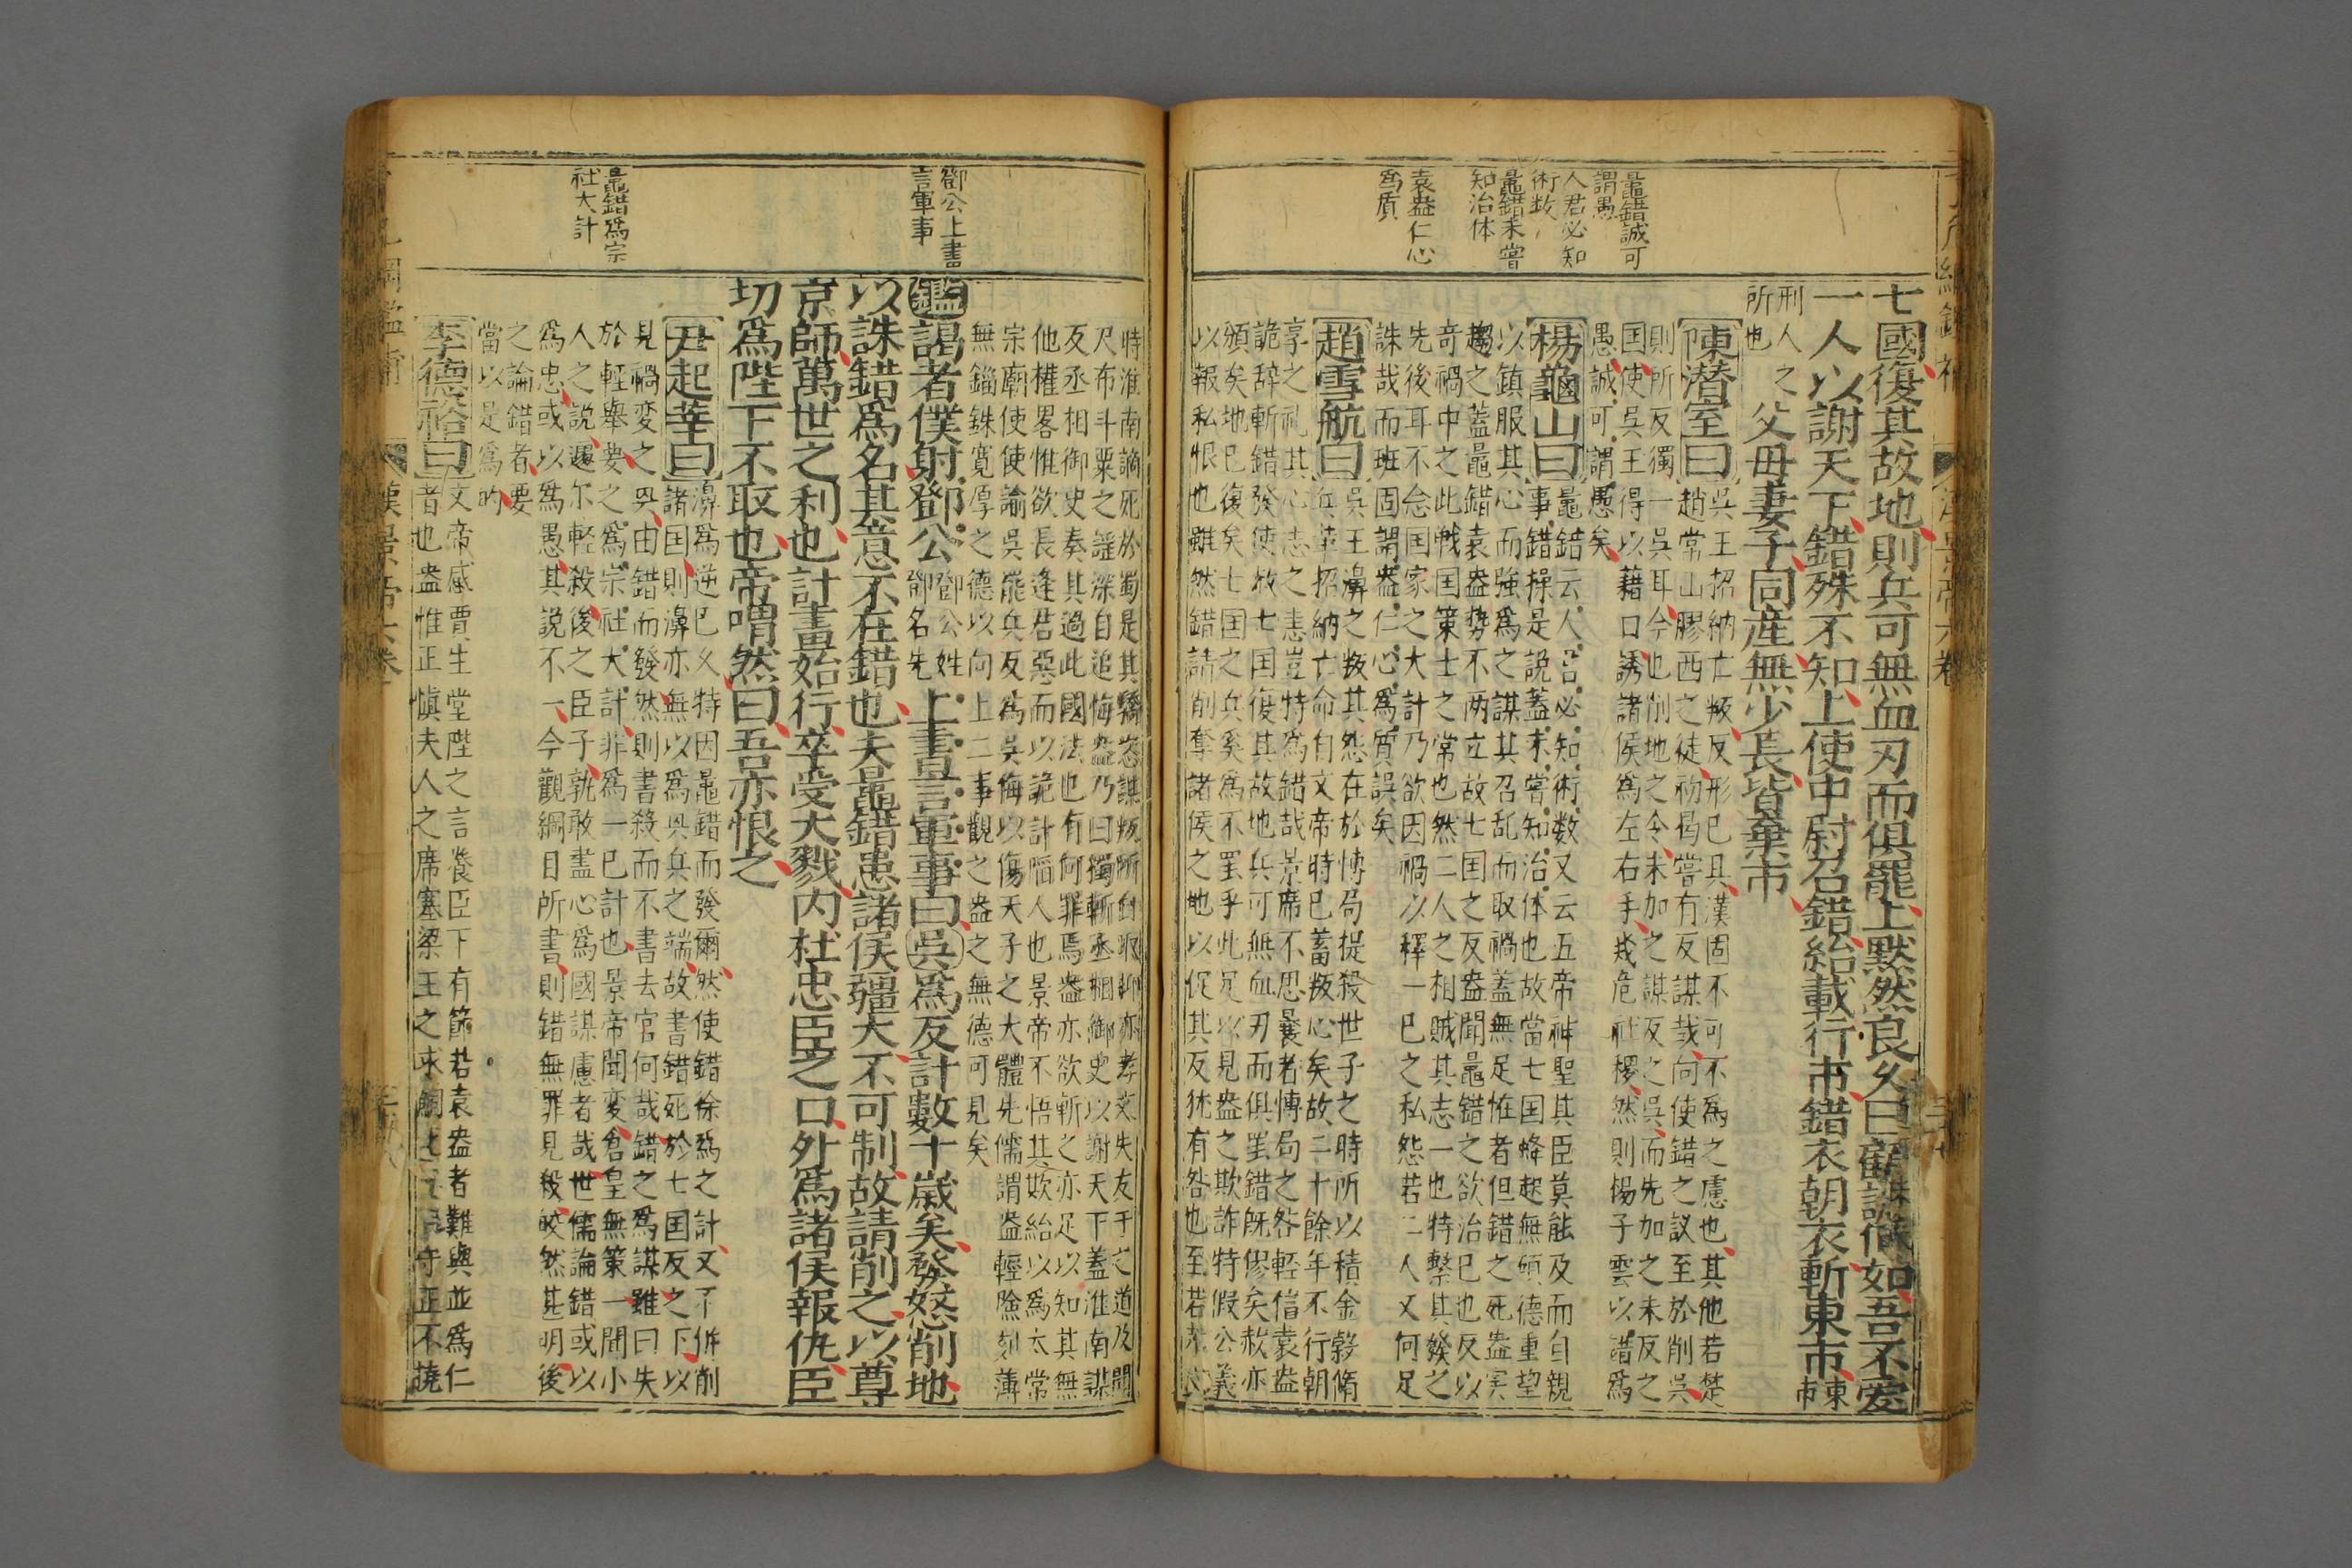 鼂錯誠可
謂愚
人君必知
術数
鼂錯未曾
知治体
袁盎仁心
為質
七國復其故地則兵可無血刃而俱罷上默然良久曰顧誠何如吾不愛
一人以謝天下錯殊不知上使中尉召錯紿載行市錯衣朝衣斬東市東
市
刑人之
所也
父母妻子同産無少長皆棄市
陳潜室曰
吳王招納亡叛反形已具漢固不可不為之慮也其他若楚
趙常山膠西之徒初曷嘗有反謀哉向使錯之議至於削吳
則所反獨一吳耳今也削地之令未加之謀反之吳而先加之未反之
国使吳王得以藉口誘諸侯為左右手幾危社稷然則揚子雲以錯為
愚誠可謂愚矣
楊龜山曰
鼂錯云人君必知術数又云五帝神聖其臣莫能及而自親
事錯操是說蓋未嘗知治体也故當七国蜂起無碩德重望
以鎮服其心而強為之謀其召乱而取禍蓋無足惟者但錯之死盎実
趨之蓋鼂錯袁盎勢不两立故七国之反盎聞鼂錯之欲治已也反以
奇禍中之此戦国策士之常也然二人之相賊其志一也特繫其發之
先後耳不念国家之大計乃欲因禍以釋一已之私怨若二人又何足
誅哉而班固謂盎仁心為質誤矣
趙雪航曰
吳王濞之叛其怨在於愽局提殺世子之時所以積金穀脩
兵革招納亡命自文帝時已蓄叛心矣故二十餘年不行朝
享之礼其心志之恚豈特為錯哉景席不思曩者愽局之咎輕信袁盎
詭辞斬錯發使赦七国復其故地兵可無血刃而俱罢錯既僇矣赦亦
頒矣地已復矣七国之兵奚為不罢乎此足以見盎之欺詐特假公義
以報私恨也雖然錯請削奪諸侯之地以促其反犹有咎也至若
時淮南謫死於蜀是其驕恣謀叛所自取抑亦孝文失友于之道及聞
尺布斗粟之謡深自追悔盎乃曰獨斬丞相御史以謝天下蓋淮南謀
反丞相御史奏其過此國法也有何罪焉盎亦欲斬之亦足以知其無
他權畧惟欲長逢君惡而以詭計陷人也景帝不悟其欺紿以為太常
宗廟使使諭吳罷兵反為吳侮以傷天子之大體先儒謂盎輕險刻薄
無錙銖寛厚之德以向上二事觀之盎之無德可見矣
鄧公上書
言軍事
鑑謁者僕射鄧公
鄧公姓
鄧名先
上書言軍事曰吳為反計數十歲矣發怒削地
以誅錯為名其意不在錯也夫鼂錯患諸侯疆大不可制故請削之以尊
京師萬世之利也計畫始行卒受大戮内杜忠臣之口外為諸侯報仇臣
切為陛下不取也帝喟然曰吾亦恨之
鼂錯為宗
社大計
尹起莘曰
濞為逆已久特因鼂錯而發爾然使錯徐為之計又不併削
諸国則濞亦無以為興兵之端故書錯死於七国反之下以
見禍变之興由錯而發然則書殺而不書去官何哉錯之為謀雖曰失
於輕舉要之為宗社大計非為一已計也景帝聞变倉皇無策一聞小
人之說遽尔輕殺後之臣子孰敢盡心為國謀慮者哉世儒論錯或以
為忠或以為愚其說不一今觀綱目所書則錯無罪見殺皎然甚明後
之論錯者要
當以是為的
李德裕曰
文帝感賈生堂陛之言養臣下有節若袁盎者難與並為仁
者也盎惟正愼夫人之席塞梁王之求守正不撓
漢景帝六卷